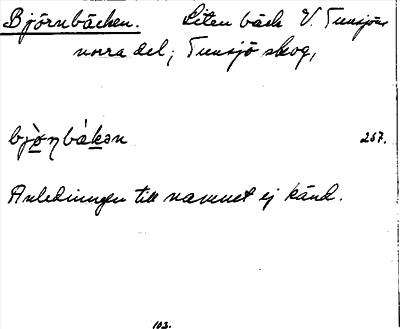 Björnbäcken. Liten bäck V. Tunsjöns
norra del; Tunsjö skog,
bjò̱ɳbá̱kən 257.
Anledningen till namnet ej känd.
103.